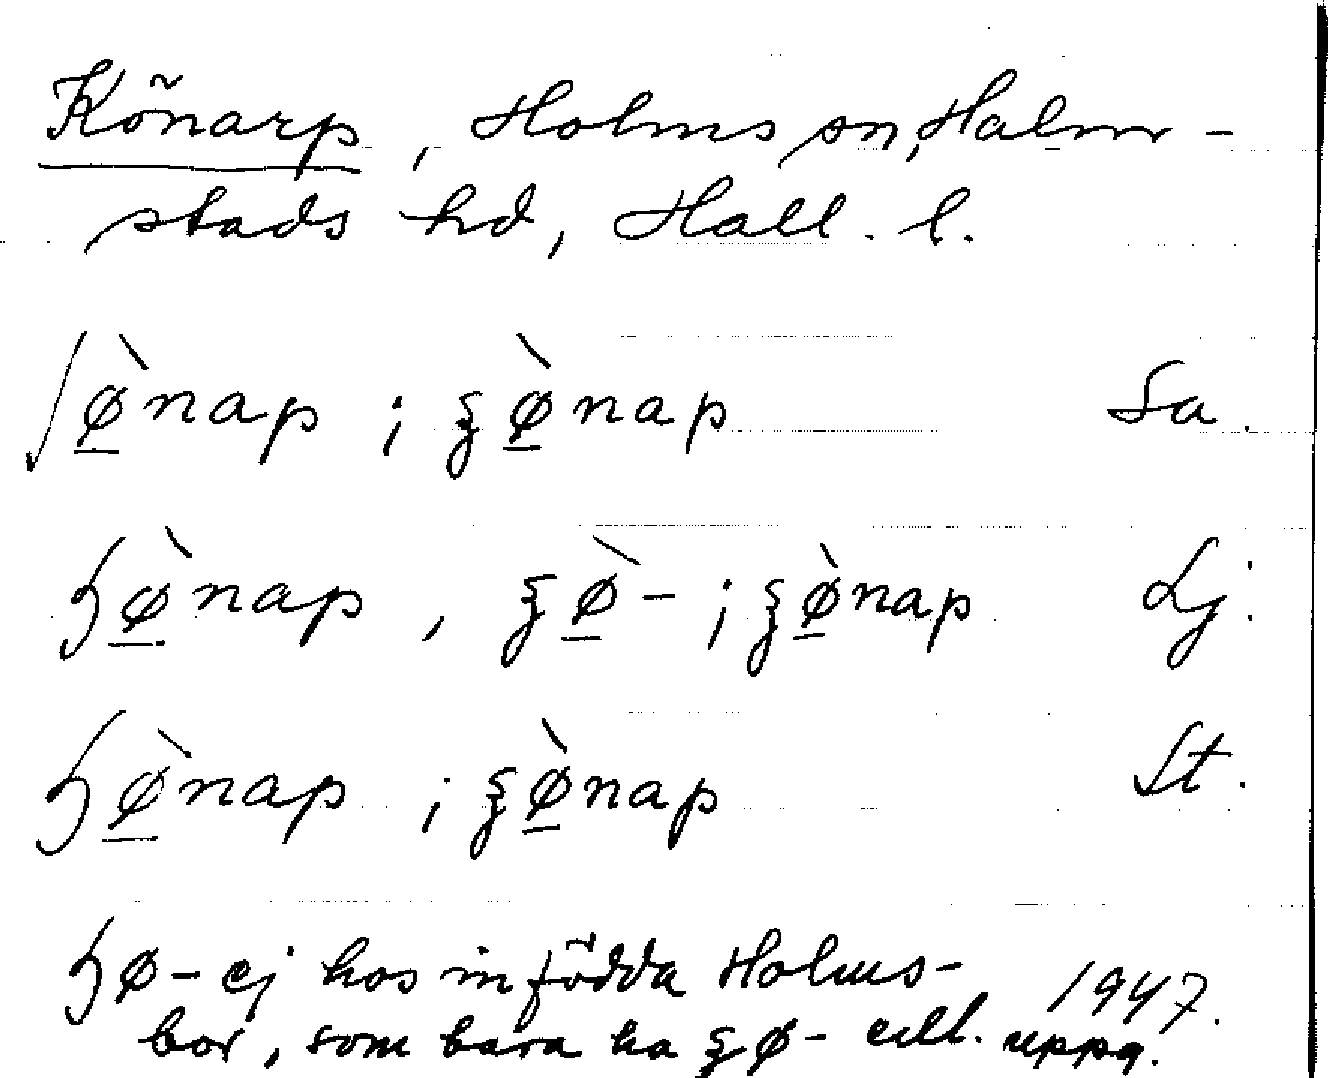 Könarp, Holms sn, Halm-
stads hd, Hall. l.
ʃø̲̀nap ; ȿø̲̀nap Sa.
ɧø̲̀nap , ȿø̲̀- ; ȿø̲̀nap Lj.
ɧø̲̀nap ; ȿø̲̀nap St.
ɧø- ej hos infödda Holms-
bor, som bara ha ȿø- enl. uppg. 1947.